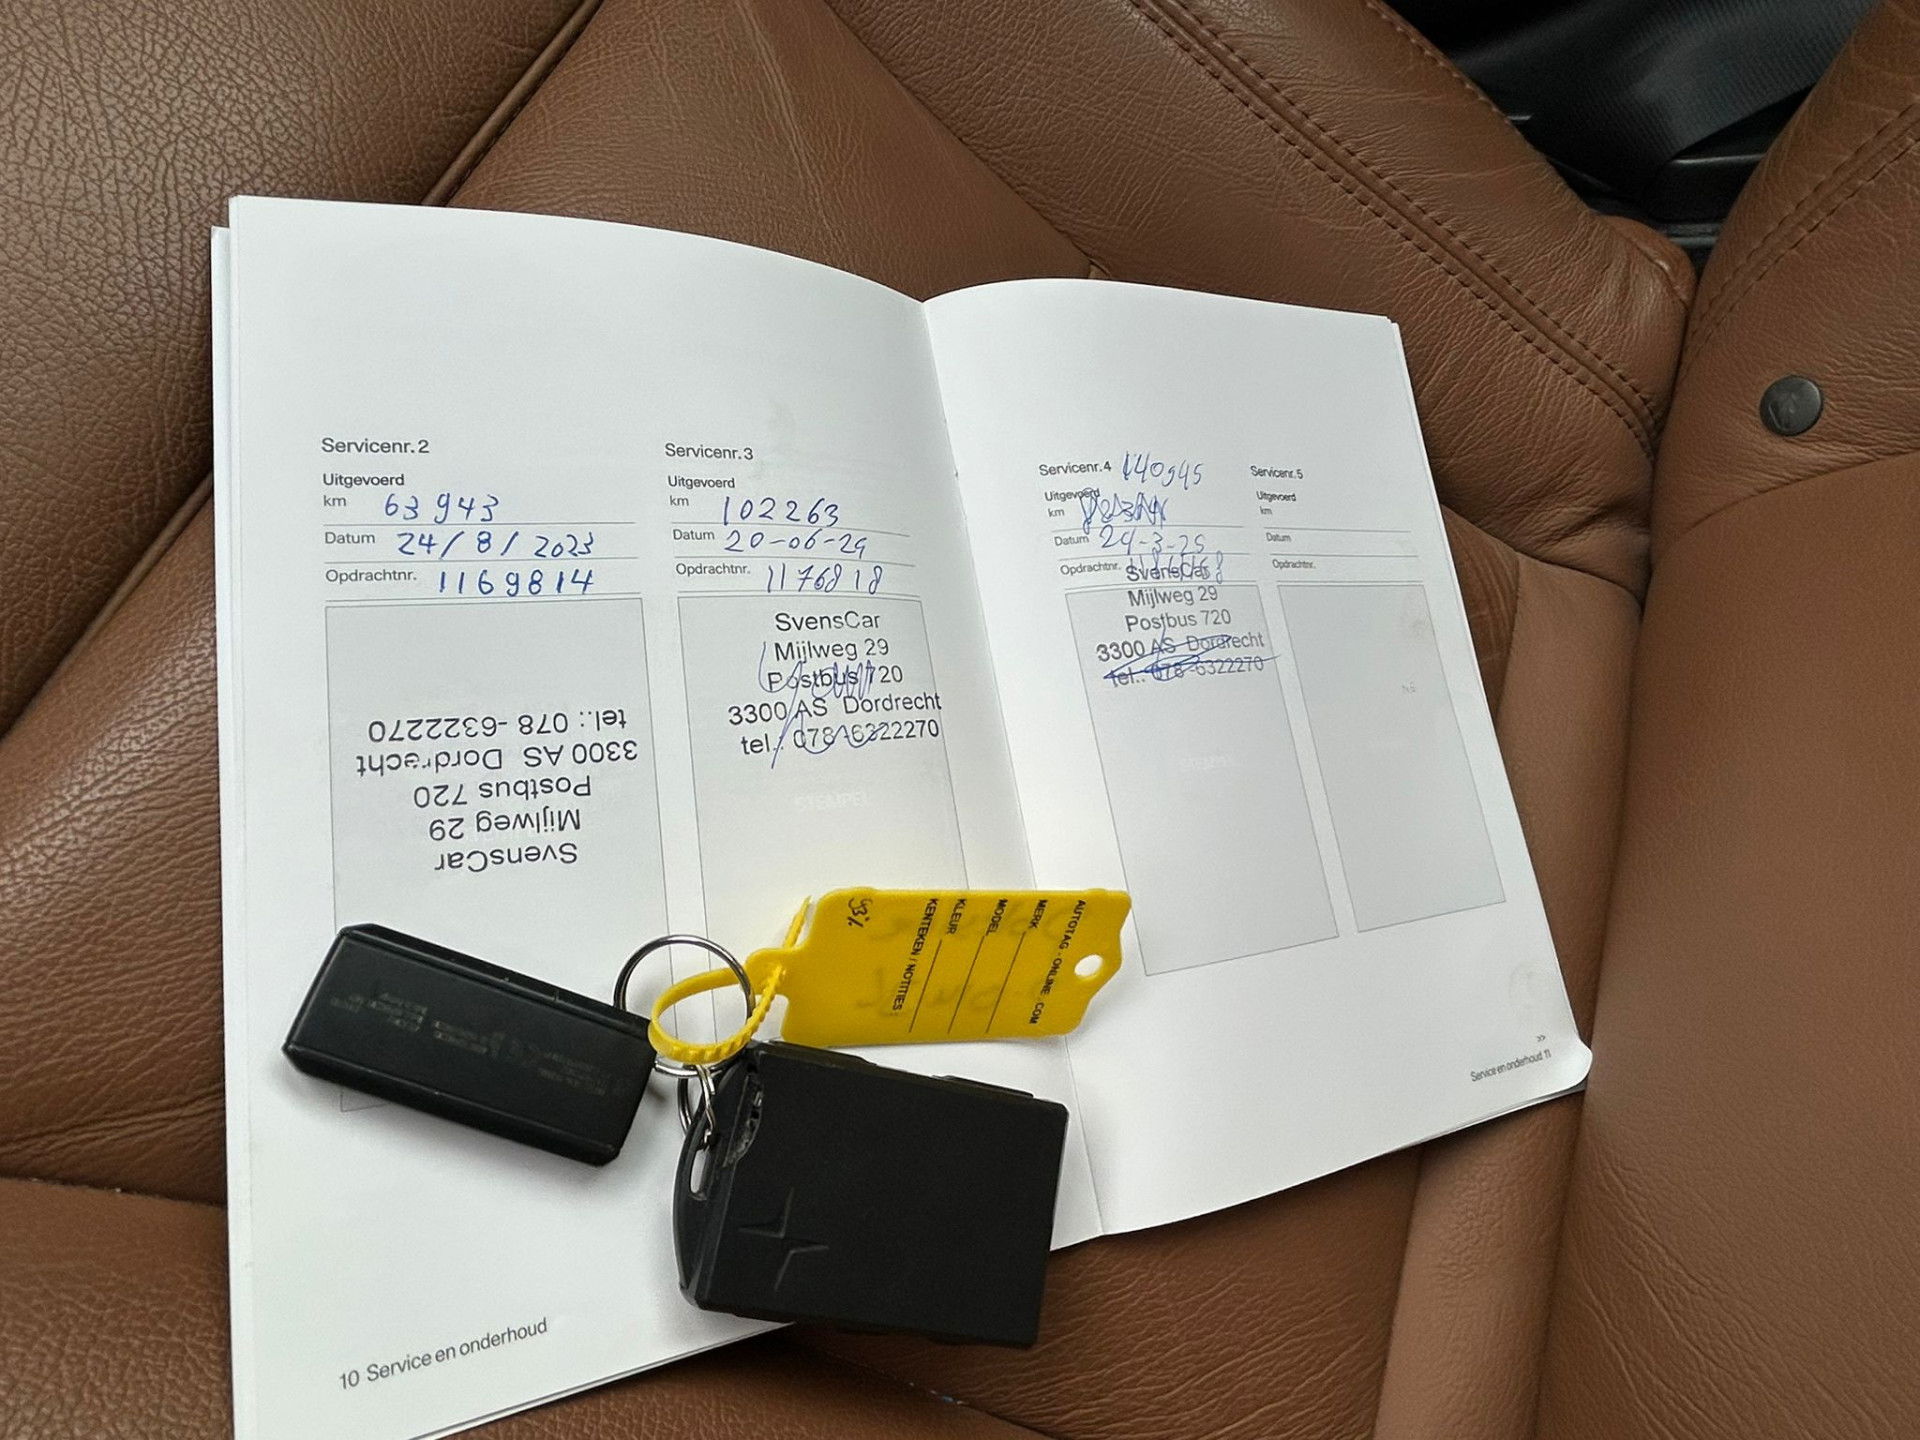 Servicenr. 2
Uitgevoerd
km 63943
Datum 24/8/2023
Opdrachtnr. 1169814
SvensCar
Mijlweg 29
Postbus 720
3300 AS Dordrecht
tel.: 078-6322270
Servicenr. 3
Uitgevoerd
km 102263
Datum 20-06-24
Opdrachtnr. 1176818
SvensCar
Mijlweg 29
Postbus 720
3300 AS Dordrecht
tel.: 078-6322270
STEMPEL
10 Service en onderhoud
Servicenr. 4 140945
Uitgevoerd
km
Datum 24-3-25
Opdrachtnr.
SvensCar
Mijlweg 29
Postbus 720
3300 AS Dordrecht
tel.: 078-6322270
STEMPEL
Servicenr. 5
Uitgevoerd
km
Datum
Opdrachtnr.
>>
Service en onderhoud 11
AUTOTAG-ONLINE.COM
MERK
MODEL
KLEUR
KENTEKEN / NOTITIES
93%